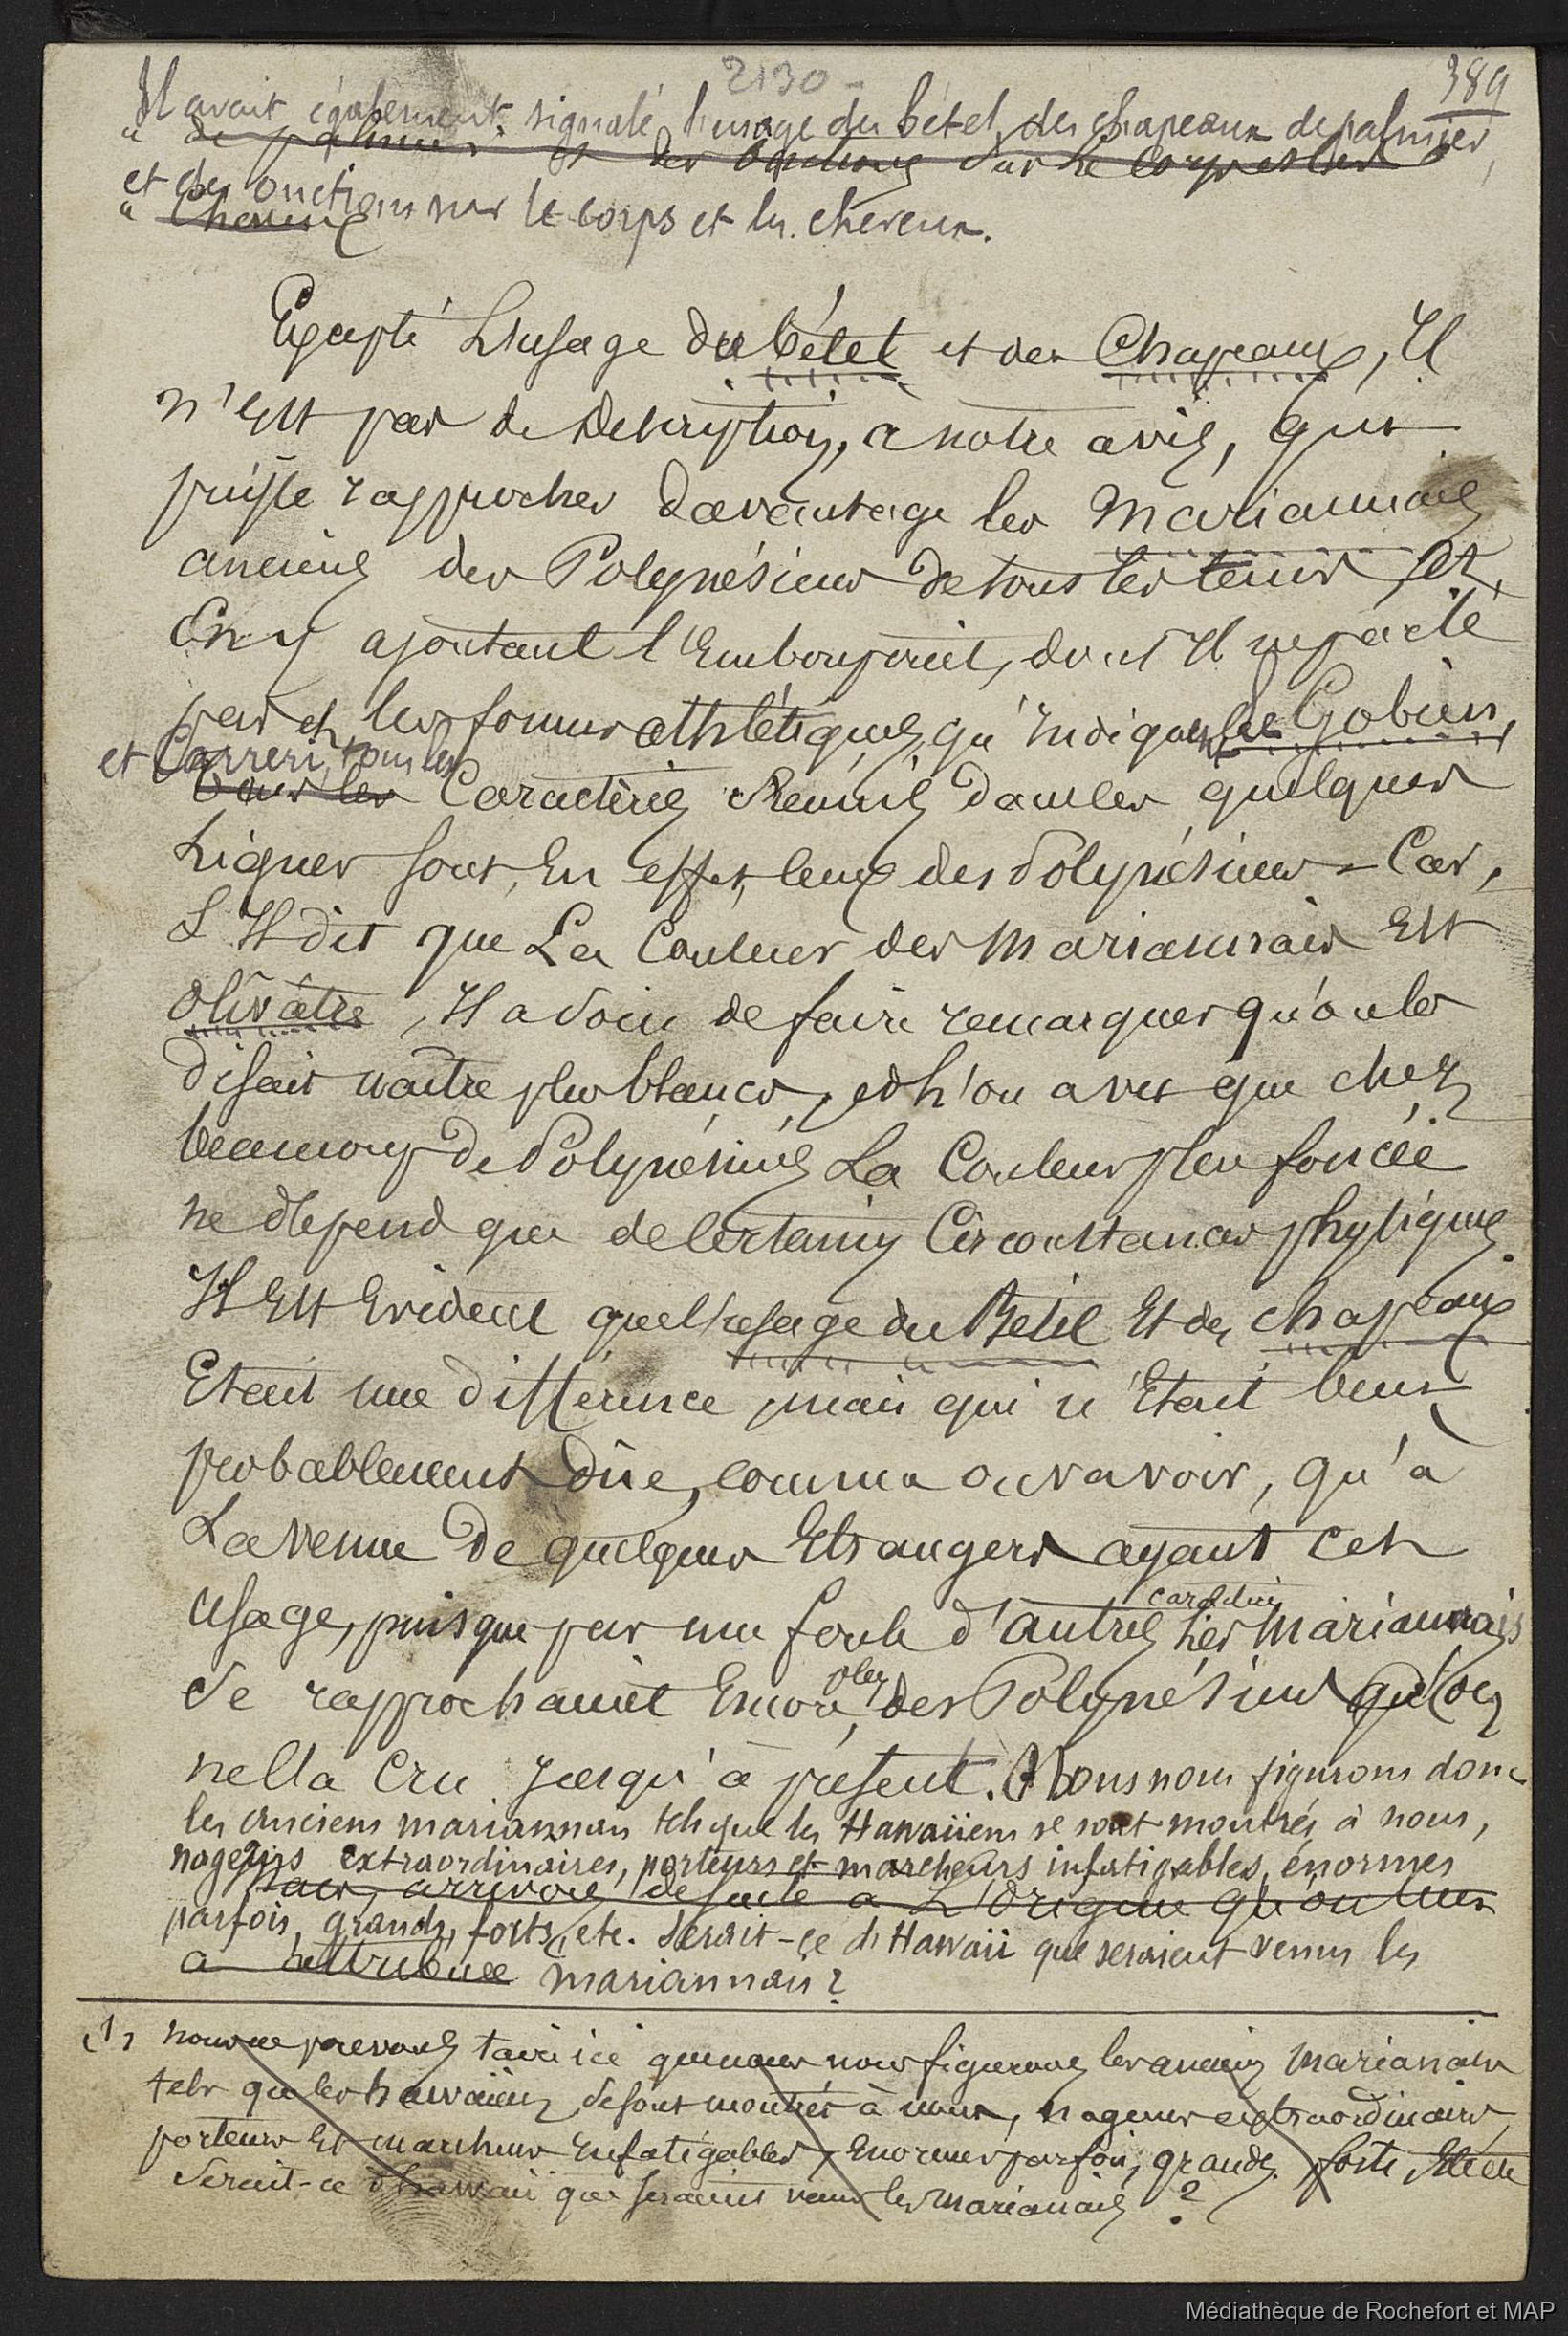 2130 -
389
Il avait également signalé l'usage du bétel, des chapeaux de palmier,
" de palmier et des onctions sur le corps et les
et des onctions sur le corps et les cheveux.
" cheveux
Excepté L'usage du bétel et des Chapeaux, Il
n'Est pas de Description, à notre avis, qui
puisse rapprocher davantage les Mariannais
anciens des Polynésiens de tous les tems, et,
En y ajoutant l'Embonpoint, dont Il ne parle
pas et les formes athlétiques, qu'Indiquent Le Gobien,
et Carreri, tous les
tous les Caractères Réunis dans les quelques
Lignes sont, En effet, ceux des Polynésiens - Car,
S'Il dit que La Couleur des Mariannais Est
Olivâtre, Il a soin de faire remarquer qu'on les
disait naître plus blancs, et l'on a vu que chez
beaucoup de Polynésiens La Couleur plus foncée
ne dépend que de Certaines Circonstances physiques.
Il Est Evident que l'usage du Bétel Et des chapeaux
Etait une différence, mais qui n'Etait bien
probablement dûe, comme on va voir, qu'à
La venue de quelques Etrangers ayant cet
usage, puisque par une foule d'autres les Mariannais
se rapprochaient Encore plus des Polynésiens qu'on
ne l'a Cru Jusqu'à présent. Nous nous figurons donc
les anciens mariannais tels que les Hawaiiens se sont montrés à nous,
nageurs extraordinaires, porteurs et marcheurs infatigables, énormes
arrivons de suite à L'Origine qu'on leur
parfois, grands, forts, etc. Serait-ce d'Hawaii que seraient venus les
a attribuée mariannais?
(1) nous ne pouvons taire ici que nous nous figurons les anciens Mariannais
tels que les hawaiiens se sont montrés à nous, nageurs extraordinaires,
porteurs Et marcheurs Infatigables, Enormes parfois, grands, forts, Etc
Serait-ce d'hawaii que seraient venus les Mariannais?
Médiathèque de Rochefort et MAP